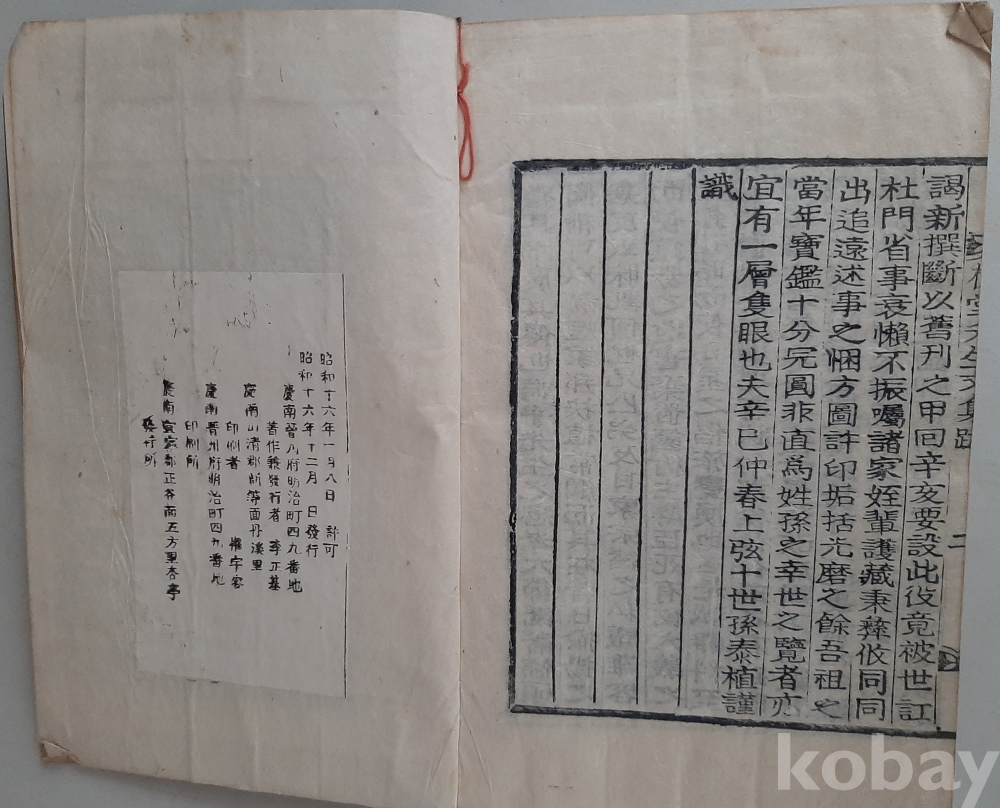 謁新撰斷以舊刊之甲回辛亥要設此役竟被世訌
杜門省事衰懶不振囑諸家姪輩護藏秉彜攸同同
出追遠述事之悃方圖許印垢括光磨之餘吾祖之
當年寶鑑十分完圓非直爲姓孫之幸世之覽者亦
宜有一層隻眼也夫辛巳仲春上弦十世孫泰植謹
識
堂先生文集跋
二
昭和十六年一月八日 許可
昭和十六年十二月 日發行
慶南晉州府明治町四九番地
著作兼發行者 李正基
慶南山淸郡新等面丹溪里
印刷者 權宇容
慶南晋州府明治町四九番地
印刷所
慶南宜寧郡正谷面五方里谷亭
發行所
kobay